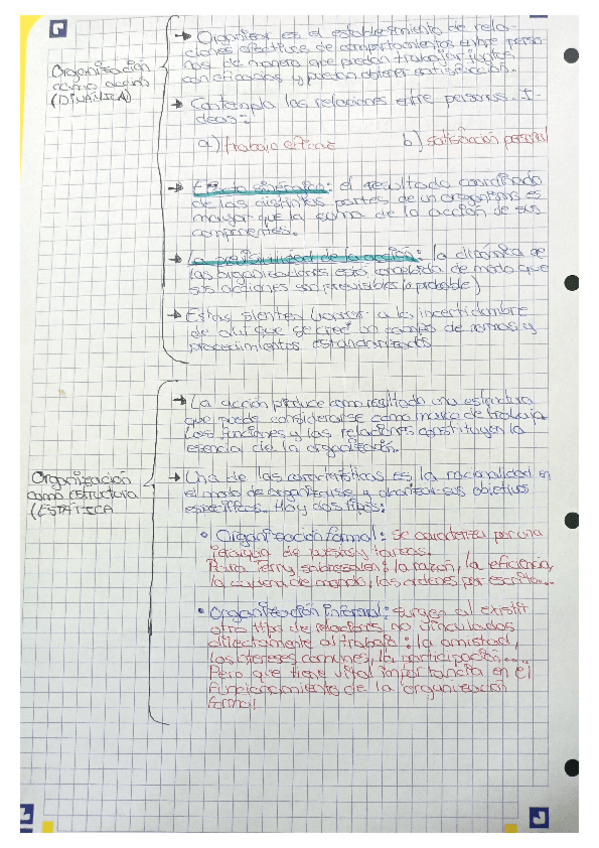 Organización
como acción
(DINÁMICA)
→ Organizar es el establecimiento de rela-
ciones efectivas de comportamientos entre perso-
nas de manera que puedan trabajar juntos
con eficacia y puedan obtener satisfacción.
→ Contempla las relaciones entre personas. I-
deas:
a) trabajo eficaz b) satisfacción personal
→ Efecto sinérgico: el resultado coordinado
de las distintas partes de un organismo es
mayor que la suma de la acción de sus
componentes.
→ La previsibilidad de la acción: la dinámica de
las organizaciones está concebida de modo que
sus acciones son previsibles (o probable)
→ Estas sienten horror a la incertidumbre
de ahí que se cree un campo de normas y
procedimientos estandarizados
Organización
como ESTRUCTURA
(ESTÁTICA
→ La acción produce como resultado una estructura
que puede considerarse como marco de trabajo.
Las funciones y las relaciones constituyen la
esencia de la organización.
→ Una de las características es la racionalidad en
el modo de organizarse y alcanzar sus objetivos
específicos. Hay dos tipos:
• Organización formal: se caracteriza por una
jerarquía de puestos y tareas.
Para Terry sobresalen: la razón, la eficiencia,
la cadena de mando, las órdenes por escrito...
• Organización informal: surgen al existir
otro tipo de relaciones no vinculadas
directamente al trabajo: la amistad,
los intereses comunes, la participación....
Pero que tiene vital importancia en el
funcionamiento de la organización
formal